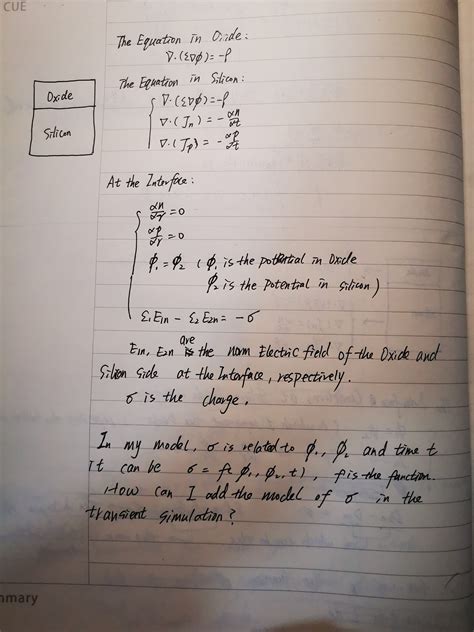 CUE
The Equation in Oxide:
∇·(ε∇φ)=-ρ
The Equation in Silicon:
Oxide
Silicon
∇·(ε∇φ)=-ρ
∇·(Jn) = -∂n/∂t
∇·(Jp) = -∂p/∂t
At the Interface:
∂n/∂r = 0
∂p/∂r = 0
φ₁ = φ₂ ( φ₁ is the potential in Oxide
φ₂ is the Potential in silicon)
ε₁E₁n - ε₂E₂n = -σ
E₁n, E₂n are the norm Electric field of the Oxide and
Silicon side at the Interface, respectively.
σ is the charge.
In my model, σ is related to φ₁, φ₂ and time t
it can be σ = f(φ₁, φ₂, t), f is the function.
How can I add the model of σ in the
transient simulation?
mmary